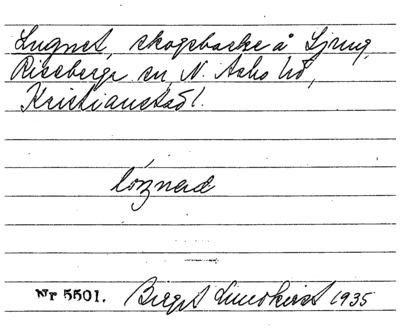 Lugnet, skogsbacke å Ljung,
Riseberga sn, N. Åsbo hd,
Kristianstads l.
Nr 5501. Birgit Lundkvist 1935